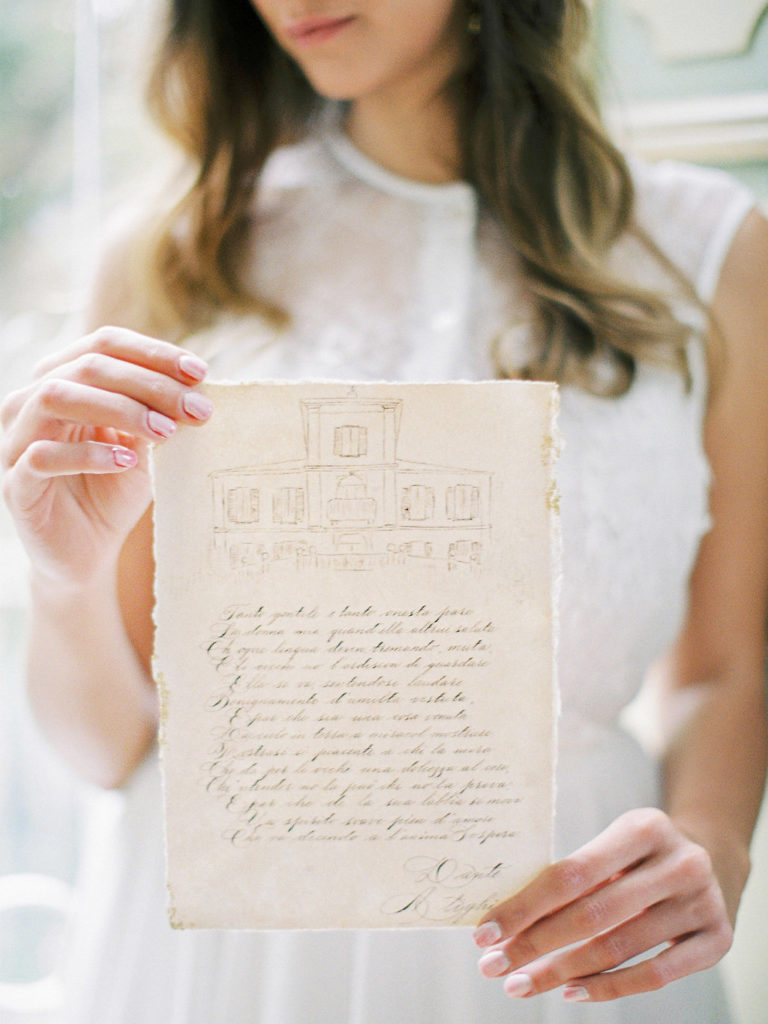 Tanto gentile e tanto onesta pare
La donna mia quand'ella altrui saluta
Ch'ogne lingua deven tremando, muta,
E li occhi no l'ardiscon di guardare
Ella si va, sentendosi laudare
Benignamente d'umilta vestuta,
E par che sia una cosa venuta
Da cielo in terra a miracol mostrare
Mostrasi sì piacente a chi la mira
Che da per li occhi una dolcezza al core,
Che 'ntender no la può chi no la prova
E par che de la sua labbia si mova
Un spirito soave pien d'amore
Che va dicendo a l'anima Sospira
Dante